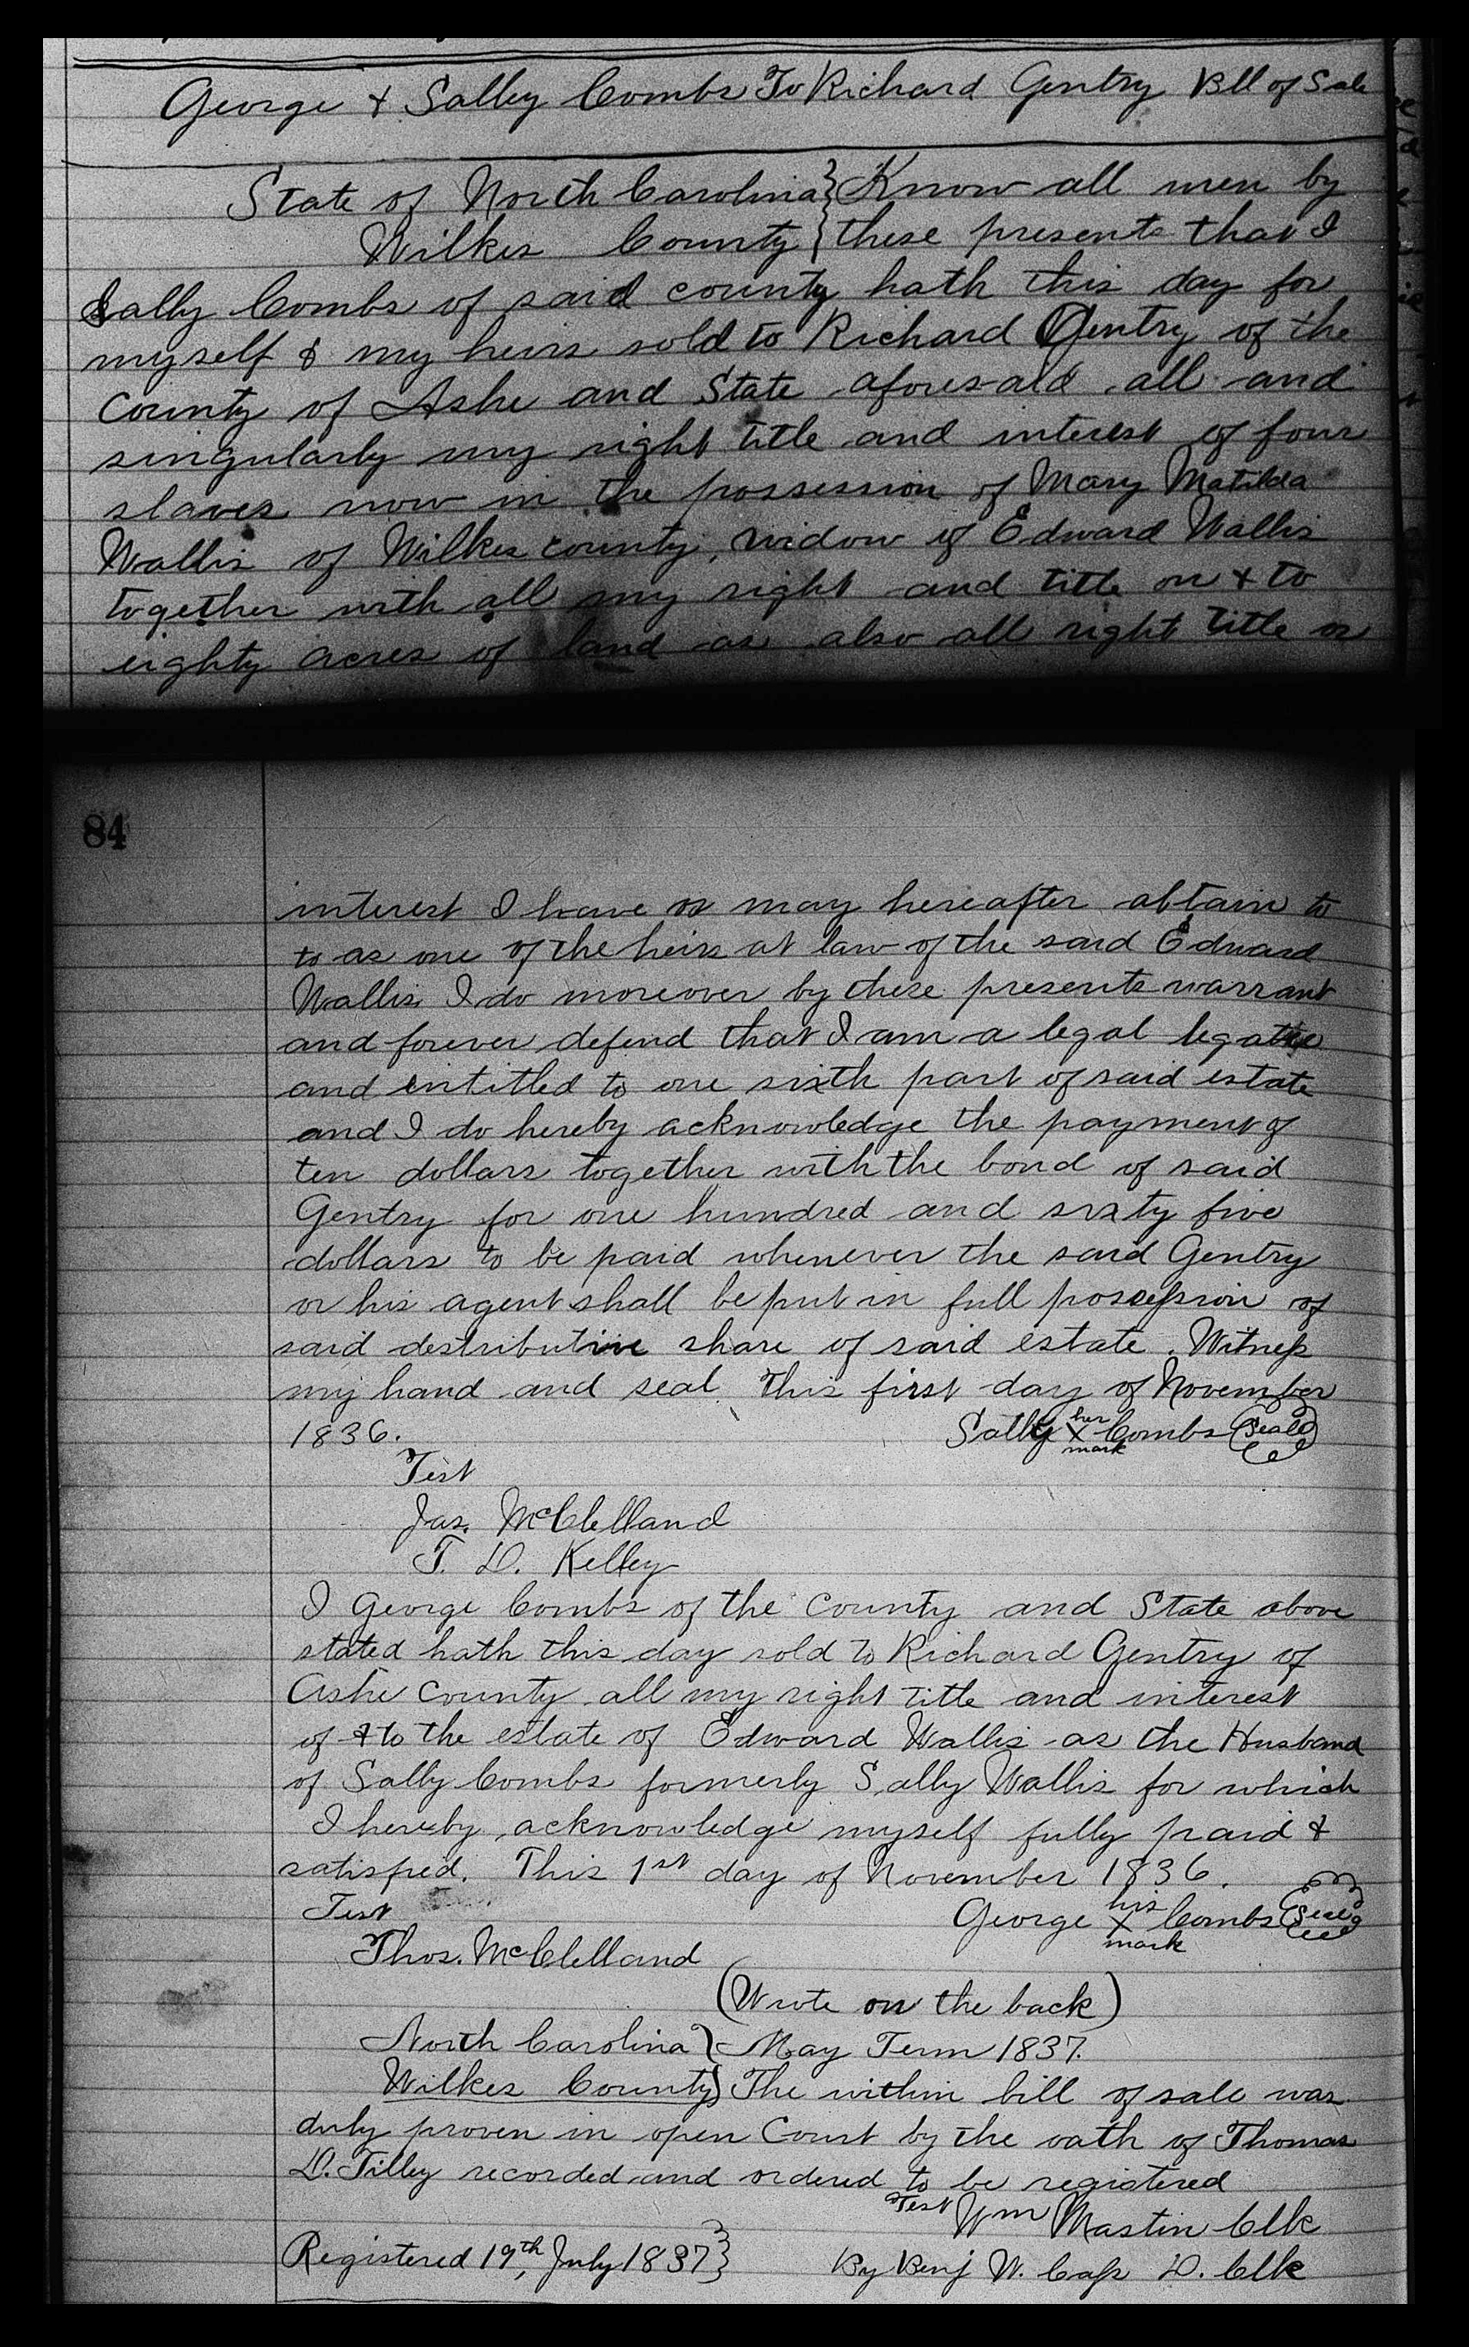 George & Salley Combs To Richard Gentry Bll of Sale
State of North Carolina } Know all men by
Wilkes County } these presents that I
Sally Combs of said county hath this day for
myself & my heirs sold to Richard Gentry of the
County of Ashe and State aforesaid all and
singularly my right title and interest of four
slaves now in the possession of Mary Matilda
Wallis of Wilkes county, widow of Edward Wallis
together with all my right and title on & to
eighty acres of land as also all right title or
84
interest I have or may hereafter obtain to
to as one of the heirs at law of the said Edward
Wallis I do moreover by these presents warrant
and forever defend that I am a legal legatee
and entitled to one sixth part of said estate
and I do hereby acknowledge the payment of
ten dollars together with the bond of said
Gentry for one hundred and sixty five
dollars to be paid whenever the said Gentry
or his agent shall be put in full possession of
said distributive share of said estate. Witness
my hand and seal This first day of November
1836. Sally her X mark Combs (Seal)
Test
Jas. McClelland
T. D. Kelley
I George Combs of the County and State above
stated hath this day sold to Richard Gentry of
Ashe County all my right title and interest
of & to the estate of Edward Wallis as the Husband
of Sally Combs formerly Sally Wallis for which
I hereby acknowledge myself fully paid &
satisfied. This 1st day of November 1836.
Test George his X mark Combs (Seal)
Thos. McClelland
(Wrote on the back)
North Carolina } May Term 1837.
Wilkes County } The within bill of sale was
duly proven in open Court by the oath of Thomas
D. Tilley recorded and ordered to be registered
Test Wm Mastin Clk
Registered 19th, July 1837 } By Benj W. Cass D. Clk